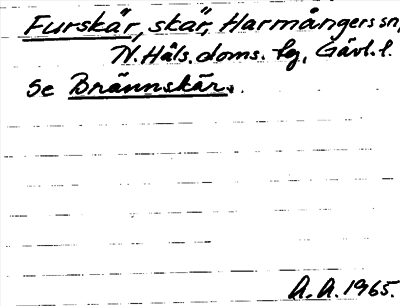 Furskär, skär, Harmångers sn,
N. Häls. doms. tg, Gävl. l.
se Brännskär.
A. A. 1965.